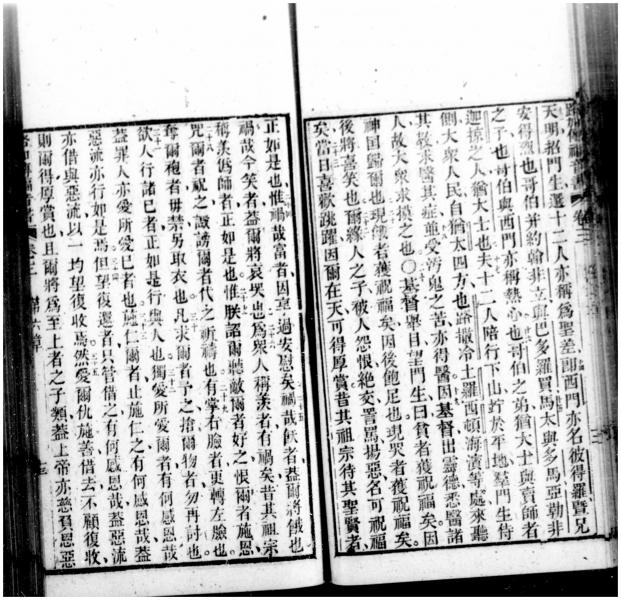 路加傳福音書 卷三
天明招門生選十二人亦稱爲聖差卽西門亦名彼得羅暨兄
安得烈也哥伯并約翰非立與巴多羅買馬太與多馬亞勒非
之子也哥伯與西門亦稱熱心也哥伯之弟猶大士與賣師者
迦掠之人猶大士也夫十二人陪行下山竚於平地羣門生侍
側大衆人民自猶太四方也路撒冷土羅西頓海濱等處來聽
其教求醫其症並受汚鬼之苦亦得醫因基督出靈德悉醫諸
人故大衆求摸之也〇基督舉目望門生曰貧者獲祝福矣因
神国歸爾也現餓者獲祝福矣因後飽足也現哭者獲祝福矣
後將喜笑也爾緣人之子被人怨恨絶交詈罵揚惡名可祝福
矣當日喜歡跳躍因爾在天可得厚賞昔其祖宗待其聖賢者
正如是也惟禍哉富者因享過安慰矣禍哉飫者蓋爾將餓也
禍哉今笑者蓋爾將哀哭也爲衆人稱羨者有禍矣昔其祖宗
稱羨僞師者正如是也惟朕諮爾聽敵爾者好之恨爾者施恩
咒爾者祝之譭謗爾者代之祈禱也有掌右臉者更轉左臉也
奪爾袍者毋禁另取衣也凡求爾者予之搶爾物者勿再討也
欲人行諸己者正如是行與人也獨愛所愛爾者有何感恩哉
蓋罪人亦愛所愛己者也施仁爾者止施仁之有何感恩哉蓋
惡流亦行如是焉但望復還者只管借之有何感恩哉蓋惡流
亦借與惡流以一均望復收焉然愛爾仇施善借去不顧復收
則爾得厚賞也且爾將爲至上者之子類蓋上帝亦慈負恩惡
卷三 第六章